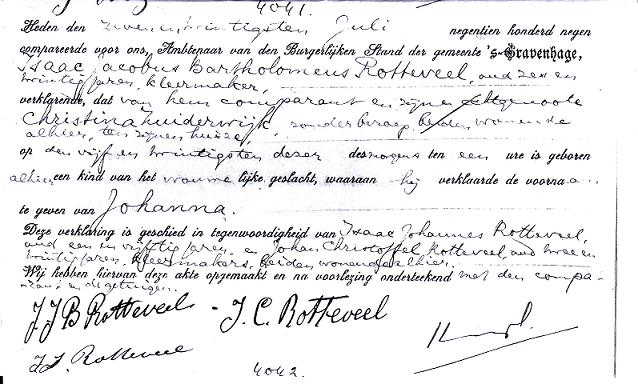 4041.
Heden den zevenentwintigsten Juli negentien honderd negen
compareerde voor ons, Ambtenaar van den Burgerlijken Stand der gemeente 's-Gravenhage,
Isaac Jacobus Bartholomeus Rotteveel, oud zes en
twintig jaren, kleermaker,
verklarende, dat van hem comparant en zijne echtgenoote
Christina Zuiderwijk, zonder beroep, beiden wonende
alhier, ten zijnen huize,
op den vijf en twintigsten dezer des morgens ten een ure is geboren
alhier een kind van het vrouwelijke geslacht, waaraan hij verklaarde de voornaa
te geven van Johanna.
Deze verklaring is geschied in tegenwoordigheid van Isaac Johannes Rotteveel,
oud een en vijftig jaren, en Johan Christoffel Rotteveel, oud twee en
twintig jaren, kleermakers, beiden wonende alhier.
Wij hebben hiervan deze akte opgemaakt en na voorlezing onderteekend met den compa-
rant en de getuigen.
J.J.B Rotteveel - J.C. Rotteveel
J.J. Rotteveel
4042.